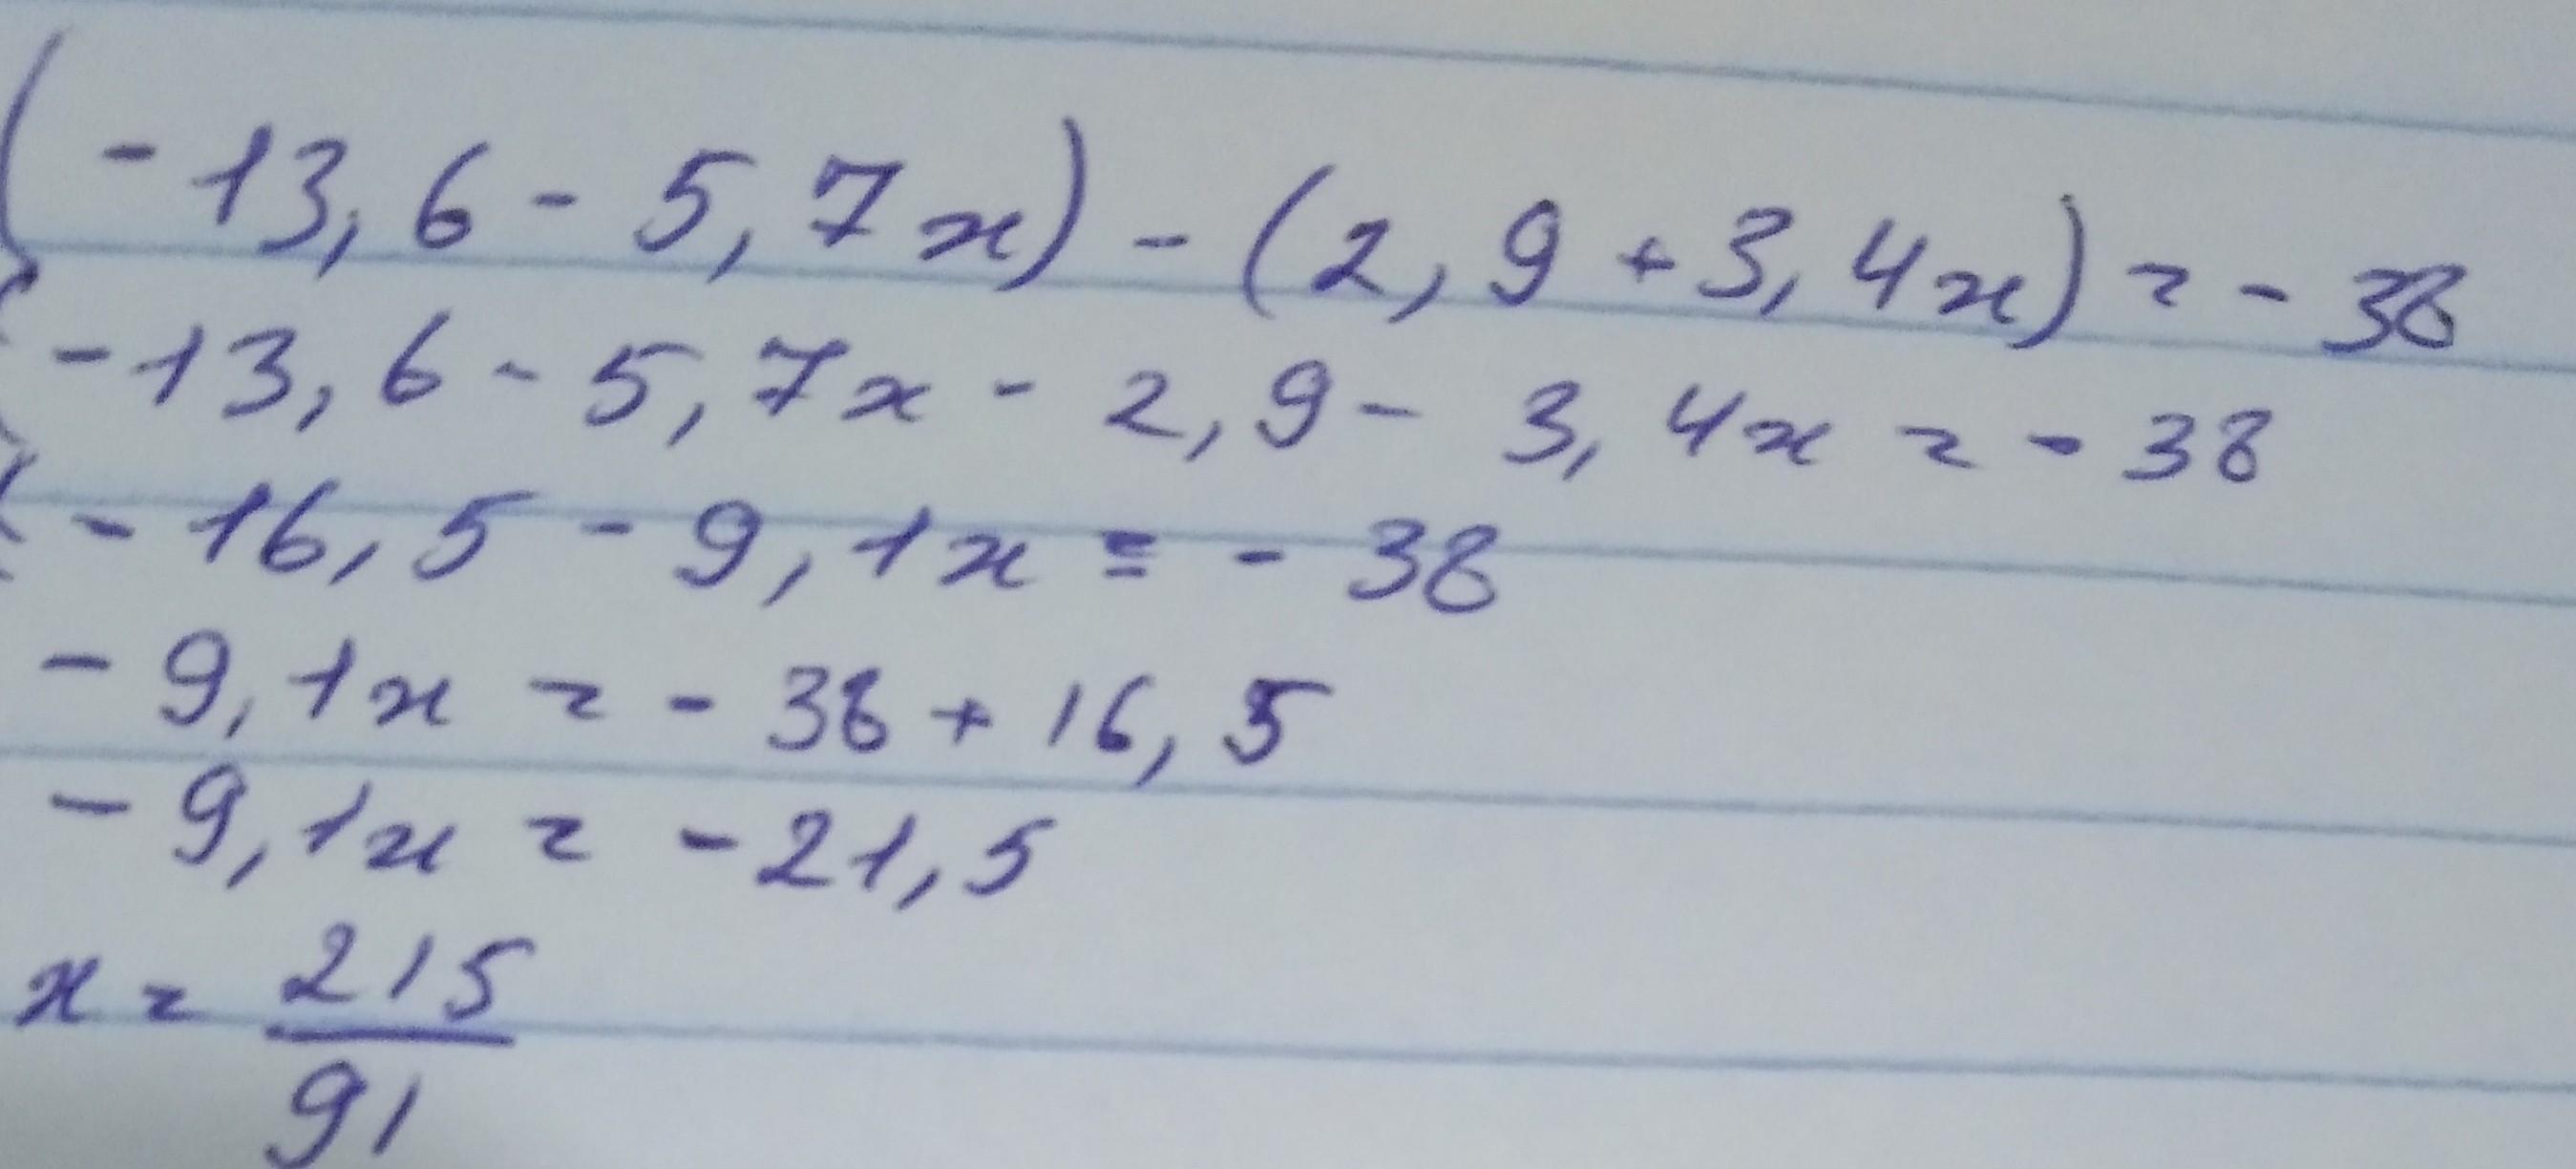 (-13,6 - 5,7x) - (2,9 + 3,4x) = - 38
-13,6 - 5,7x - 2,9 - 3,4x = - 38
- 16,5 - 9,1x = - 38
- 9,1x = - 38 + 16,5
- 9,1x = - 21,5
x = 215/91